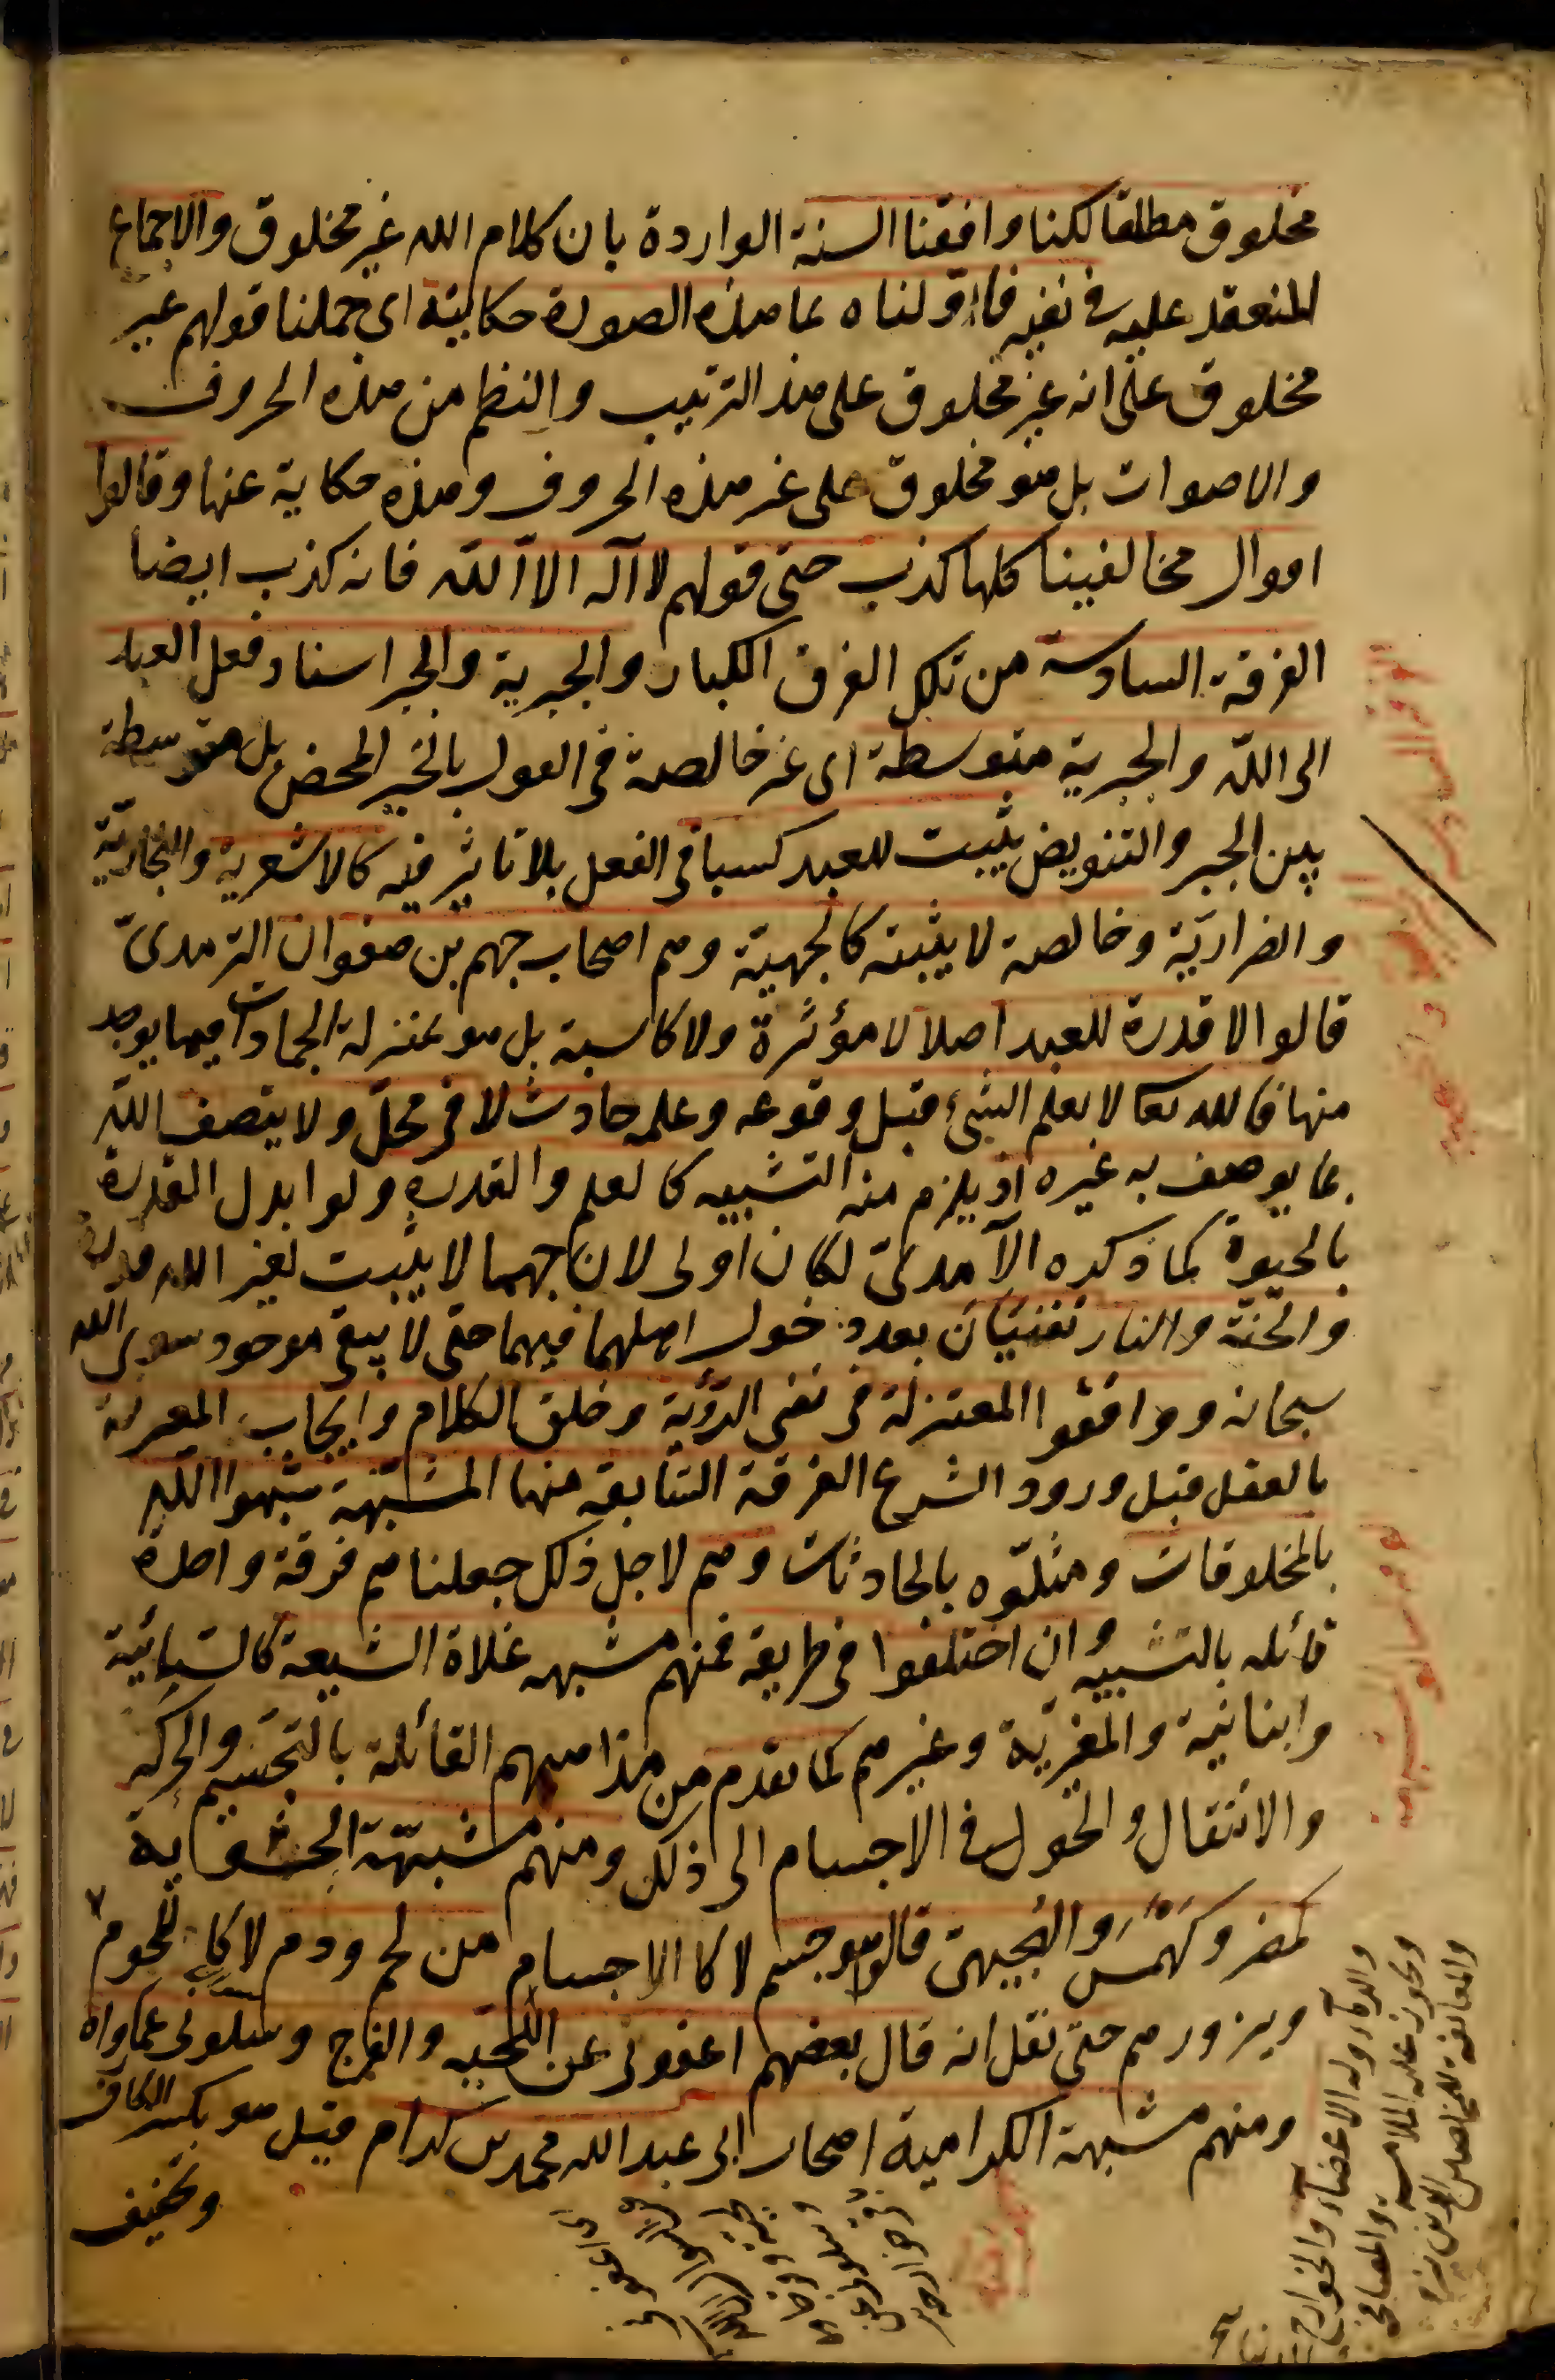 مخلوق مطلقا لكنا وافقنا السنة الواردة بان كلام الله غير مخلوق والاجماع
المنعقد عليه في نفيه فاولناه بما هذه الصورة حكايته اى حملنا قولهم غير
مخلوق على انه غير مخلوق على هذا الترتيب والنظم من هذه الحروف
والاصوات بل هو مخلوق على غير هذه الحروف وهذه حكاية عنها وقالوا
اقوال مخالفينا كلها كذب حتى قولهم لا اله الا الله فانه كذب ايضا
الفرقة السادسة من تلك الفرق الكبار والجبرية والجبر اسناد فعل العباد
الى الله والجبرية متوسطة اى غير خالصة في القول بالجبر المحض بل متوسطة
بين الجبر والتفويض يثبت للعبد كسبا في الفعل بلا تاثير فيه كالاشعرية والنجارية
والضرارية وخالصة لا يثبته كالجهمية وهم اصحاب جهم بن صفوان الترمذى
قالوا لا قدرة للعبد اصلا لا مؤثرة ولا كاسبة بل هو بمنزلة الجمادات فيما يوجد
منها فالله تعا لا يعلم الشئ قبل وقوعه وعلمه حادث لا في محل ولا يتصف الله
بما يوصف به غيره اذ يلزم منه التشبيه كالعلم والقدرة ولو ابدل القدرة
بالحيوة كما ذكره الآمدى لكان اولى لان جهما لا يثبت لغير الله قدرة
والجنة والنار تفنيان بعد دخول اهلهما فيهما حتى لا يبقى موجود سوى الله
سبحانه ووافقوا المعتزلة في نفى الرؤية وخلق الكلام وايجاب المعرفة
بالعقل قبل ورود الشرع الفرقة السابعة منها المشبهة شبهوا الله
بالمخلوقات ومثلوه بالحادثات وهم لاجل ذلك جعلناهم فرقة واحدة
قائله بالتشبيه وان اختلفوا في طريقه فمنهم مشبهه غلاة الشيعة كالسبائية
وابنانية والمغرية وغيرهم كما تقدم من مذاهبهم القائلة بالتجسيم والحركة
والانتقال والحول في الاجسام الى ذلك ومنهم مشبهة الحشوية
كمضر وكهمس والهجيمى قالوا هو جسم لا كالاجسام من لحم ودم لا كاللحوم
ويزورهم حتى نقل انه قال بعضهم اعفونى عن اللحيه والفرج وسلونى عما وراه
ومنهم مشبهة الكرامية اصحاب ابى عبد الله محمد بن كرام قيل هو بكسر الكاف
وتخفيف
والدماء وله الاعضاء والجوارح
ويجوز عليه الملامسة والمصافحة
والمعانقة للمخلصين